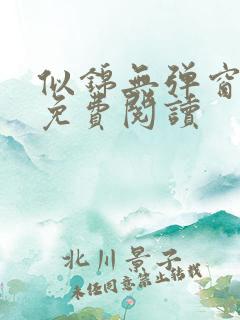 似錦無弹窗
免費閱讀
北川景子
未经同意禁止转载